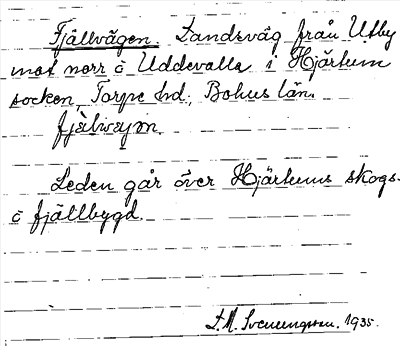 Fjällvägen. Landsväg från Utby
mot norr å Uddevalla i Hjärtum
socken, Torpe hd, Bohus län.
fjäl̀vεjən.
Leden går över Hjärtums skogs-
å fjällbygd.
S.M. Svenungsson. 1935.